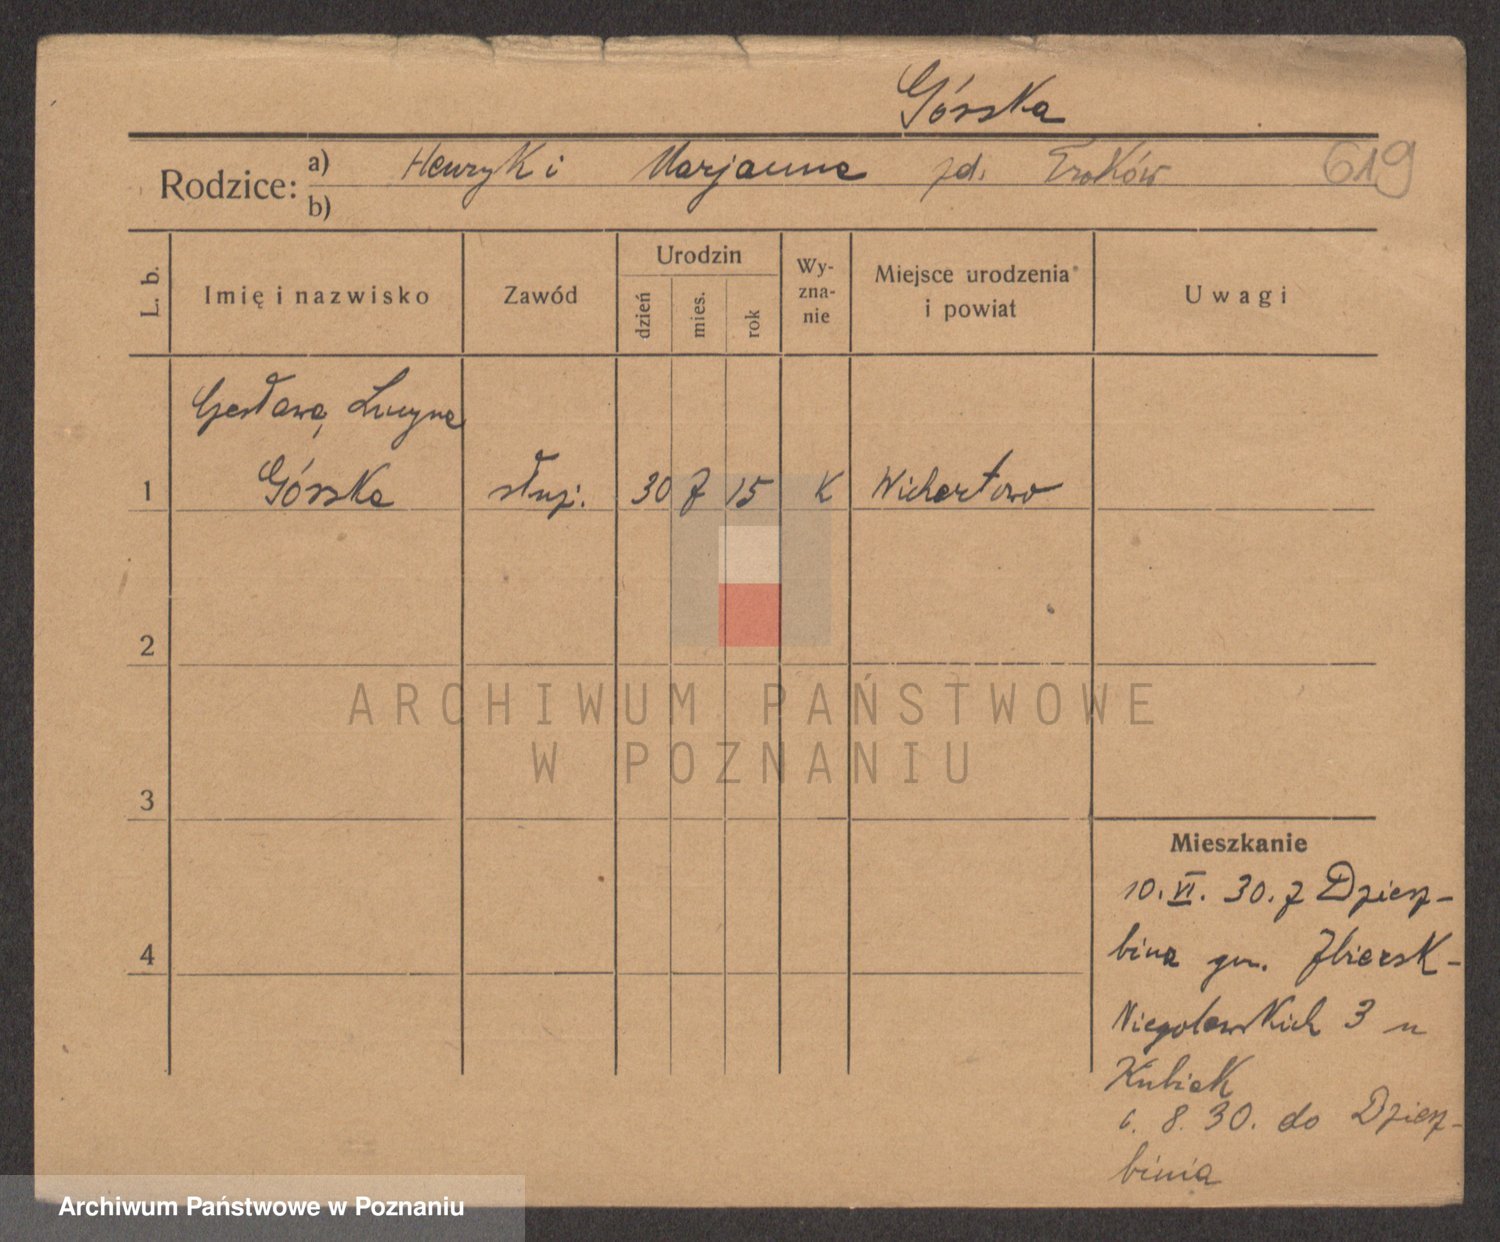 Górska
Rodzice: a) Henryk i Marjanna zd. Troków 619
b)
L. b. Imię i nazwisko Zawód Urodzin dzień mies. rok Wyznanie Miejsce urodzenia i powiat Uwagi
Czesława, Lucyna
1 Górska służ. 30 7 15 K Wichertowo
2
ARCHIWUM PAŃSTWOWE
W POZNANIU
3
Mieszkanie
10. VI. 30. z Dziesz-
4 bina gm. Zbiersk -
Niegolewskich 3 u
Kubiak
6. 8. 30. do Dziesz-
binia
Archiwum Państwowe w Poznaniu